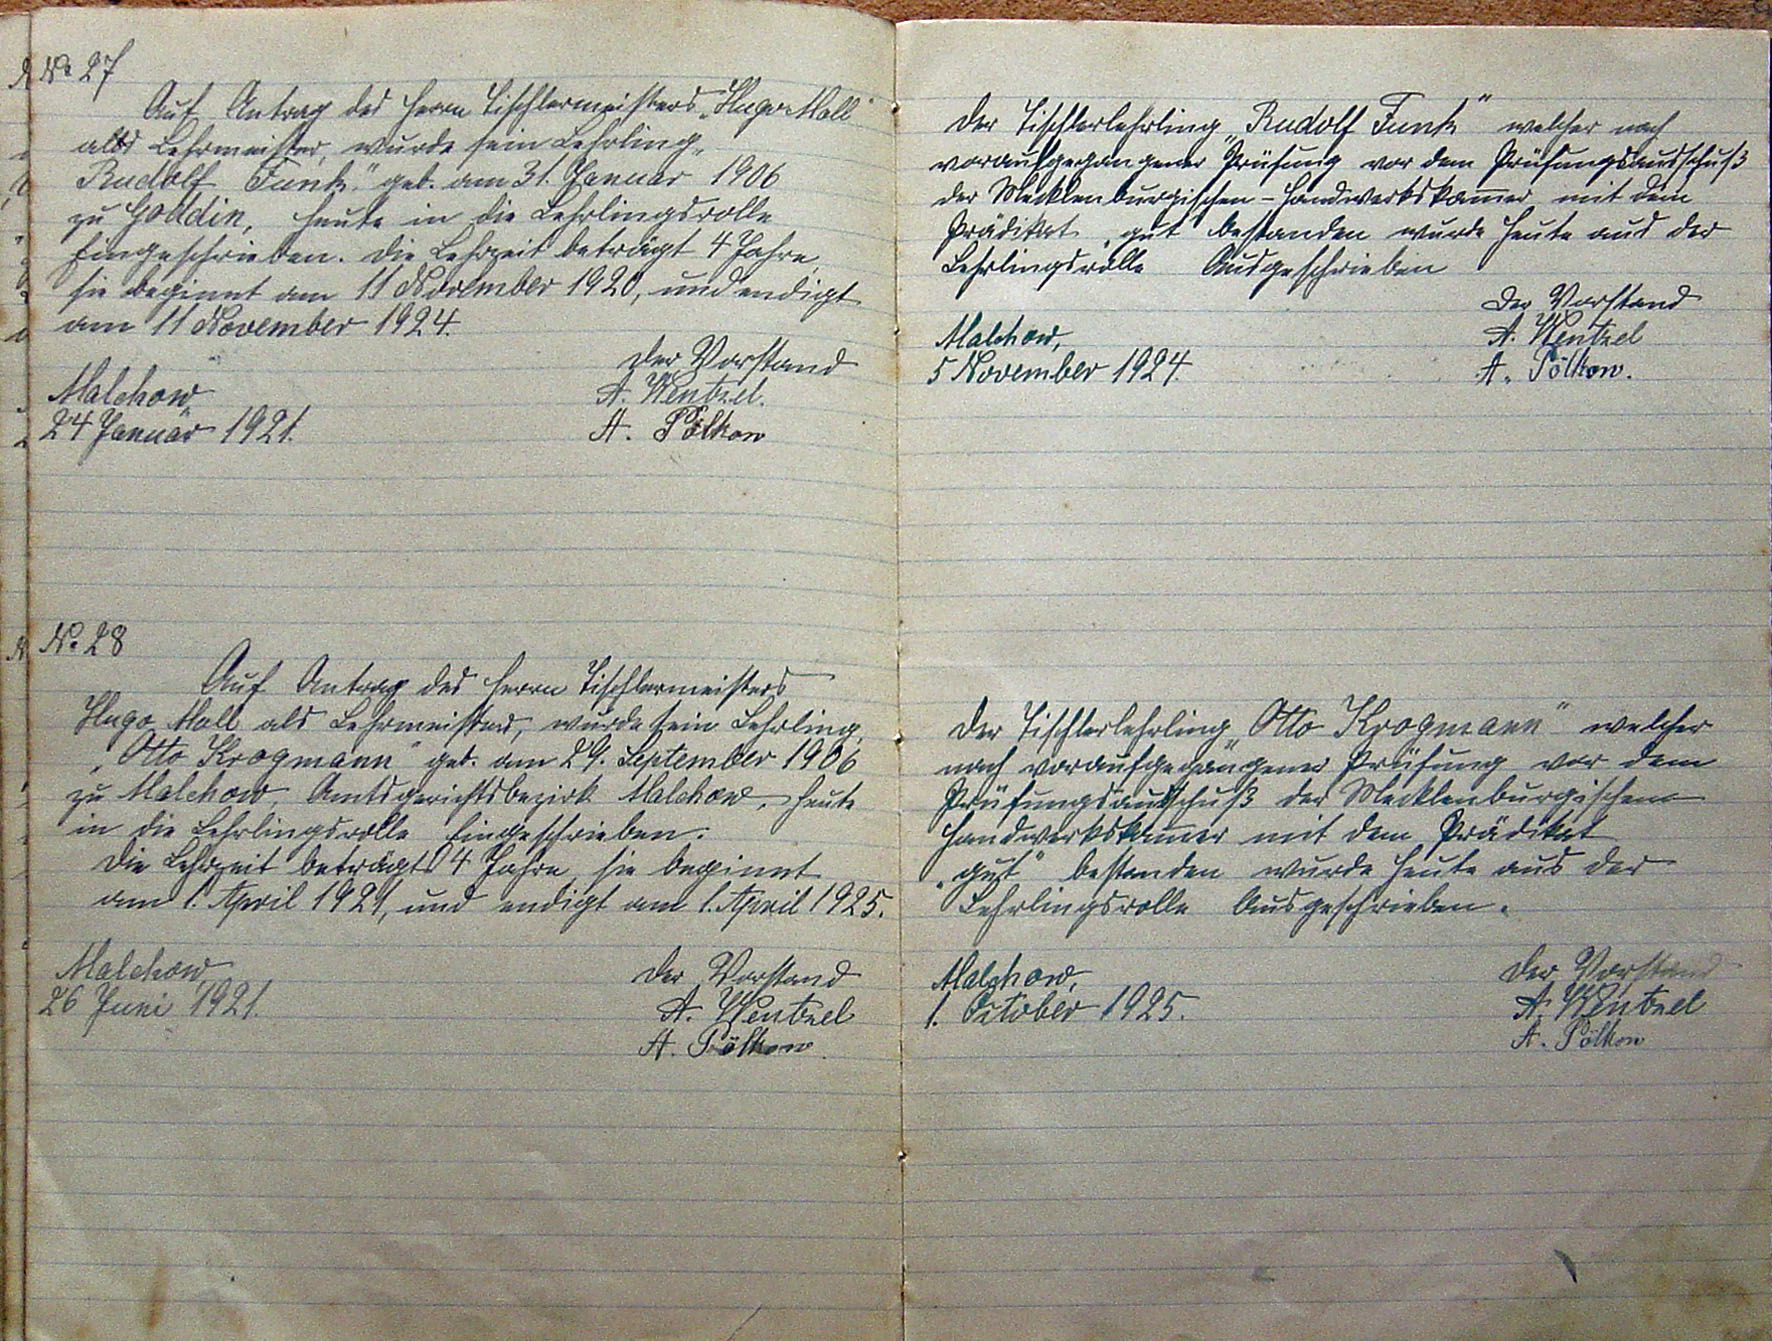 No 27
Auf Antrag des Herrn Tischlermeisters „Hugo Moll"
als Lehrmeister, wurde sein Lehrling, „
Rudolf Funk." geb. am 31. Januar 1906
zu Goddin, heute in die Lehrlingsrolle
Eingeschrieben. Die Lehrzeit beträgt 4 Jahre,
sie beginnt am 11 November 1920, und endigt
am 11 November 1924.
Der Vorstand
Malchow
A. Wentzel.
24 Januar 1921.
A. Pölkow
No 28
Auf Antrag des Herrn Tischlermeisters
Hugo Moll als Lehrmeister, wurde sein Lehrling,
„Otto Krogmann" geb. am 29. September 1906
zu Malchow, Amtsgerichtsbezirk Malchow, heute
in die Lehrlingsrolle Eingeschrieben.
Die Lehrzeit beträgt 4 Jahre, sie beginnt
am 1. April 1921, und endigt am 1. April 1925.
Malchow,
Der Vorstand
26 Juni 1921.
A. Wentzel
A. Pölkow.
Der Tischlerlehrling „Rudolf Funk" welcher nach
voraufgegangener Prüfung vor dem Prüfungsausschuß
der Mecklenburgischen-Handwerkskam̄er mit dem
Prädikat „gut" bestanden wurde heute aus der
Lehrlingsrolle Ausgeschrieben
Der Vorstand
Malchow,
A. Wentzel
5 November 1924.
A. Pölkow.
Der Tischlerlehrling „Otto Krogmann" welcher
nach voraufgegangener Prüfung vor dem
Prüfungsausschuß der Mecklenburgischen
Handwerkskam̄er mit dem Prädikat
„gut" bestanden wurde heute aus der
Lehrlingsrolle Ausgeschrieben.
Malchow,
Der Vorstand
1. October 1925.
A. Wentzel
A. Pölkow